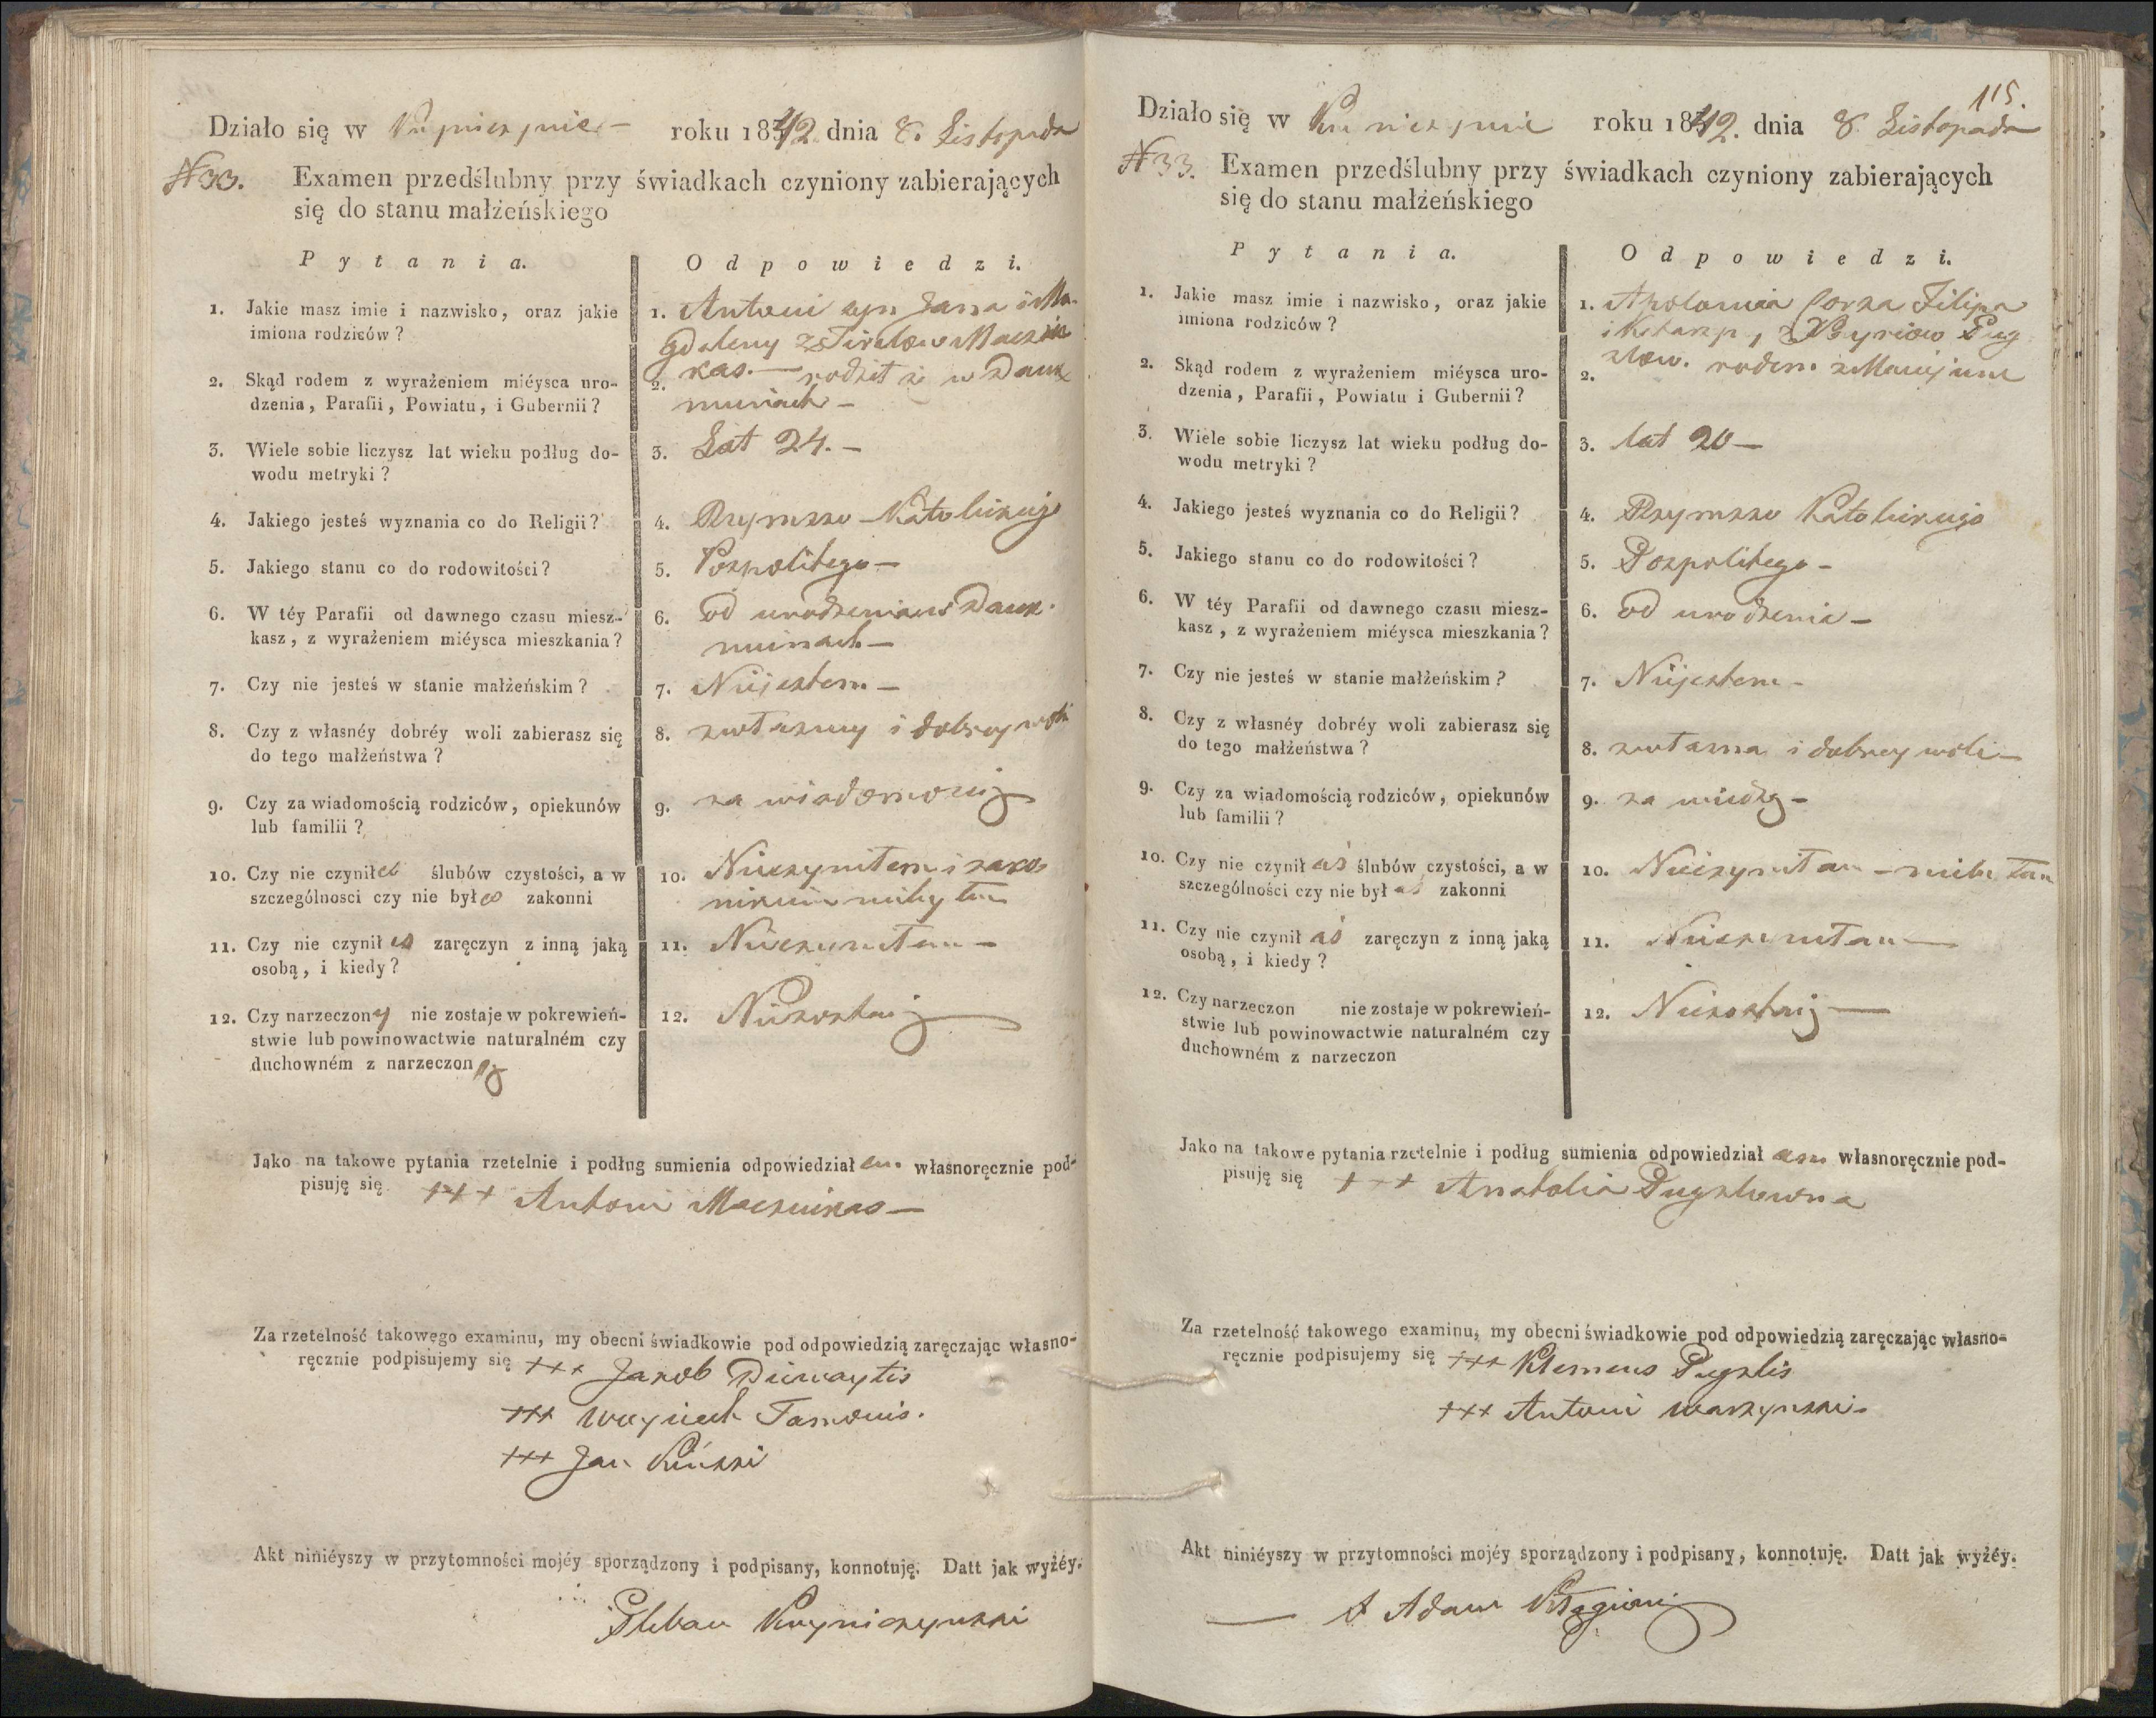 Działo się w roku 1842 dnia 8. Listopada
N 33. Examen przedślubny przy świadkach czyniony zabierających
się do stanu małżeńskiego
Pytania. Odpowiedzi.
1. Jakie masz imie i nazwisko, oraz jakie
imiona rodziców?
1. Antoni syn Jana i Ma-
gdaleny
2. Skąd rodem z wyrażeniem miéysca uro-
dzenia, Parafii, Powiatu, i Gubernii?
2. kas. — rodził się w
3. Wiele sobie liczysz lat wieku podług do-
wodu metryki?
3. Lat 24. —
4. Jakiego jesteś wyznania co do Religii?
4. Rzymsko Katolickiego
5. Jakiego stanu co do rodowitości?
5. Pospolitego —
6. W téy Parafii od dawnego czasu miesz-
kasz, z wyrażeniem miéysca mieszkania?
6. od urodzenia w
7. Czy nie jesteś w stanie małżeńskim?
7. Nie jestem —
8. Czy z własnéy dobréy woli zabierasz się
do tego małżeństwa?
8. z własney i dobrey woli
9. Czy za wiadomością rodziców, opiekunów
lub familii?
9. za wiadomością
10. Czy nie czyniłeś ślubów czystości, a w
szczególnosci czy nie byłeś zakonni
10. Nieczyniłem i zako-
nikiem niebyłem
11. Czy nie czynił eś zaręczyn z inną jaką
osobą, i kiedy?
11. Nieczyniłem —
12. Czy narzeczony nie zostaje w pokrewień-
stwie lub powinowactwie naturalném czy
duchowném z narzeczoną
12. Niezostaię
Jako na takowe pytania rzetelnie i podług sumienia odpowiedział em. własnoręcznie pod-
pisuję się +++ Antoni Maczuikas —
Za rzetelność takowego examinu, my obecni świadkowie pod odpowiedzią zaręczając własno-
ręcznie podpisujemy się +++ Jakob Dziewaytis
+++ Woyciech Tamonis.
+++ Jan
Akt niniéyszy w przytomności mojéy sporządzony i podpisany, konnotuję. Datt jak wyżéy.
Pleban
115.
Działo się w roku 1842. dnia 8 Listopada
N 33. Examen przedślubny przy świadkach czyniony zabierających
się do stanu małżeńskiego
Pytania. Odpowiedzi.
1. Jakie masz imie i nazwisko, oraz jakie
imiona rodziców?
1. Apolonia Corka Filipa
2. Skąd rodem z wyrażeniem miéysca uro-
dzenia, Parafii, Powiatu i Gubernii?
2. rodem z
3. Wiele sobie liczysz lat wieku podług do-
wodu metryki?
3. lat 20 —
4. Jakiego jesteś wyznania co do Religii?
4. Rzymsko Katolickiego
5. Jakiego stanu co do rodowitości?
5. Pospolitego —
6. W téy Parafii od dawnego czasu miesz-
kasz, z wyrażeniem miéysca mieszkania?
6. od urodzenia —
7. Czy nie jesteś w stanie małżeńskim?
7. Nie jestem —
8. Czy z własnéy dobréy woli zabierasz się
do tego małżeństwa?
8. z własna i dobrey woli —
9. Czy za wiadomością rodziców, opiekunów
lub familii?
9. za wiedzą —
10. Czy nie czynił aś ślubów czystości, a w
szczególności czy nie był aś zakonni
10. Nieczyniłam — niebyłam
11. Czy nie czynił aś zaręczyn z inną jaką
osobą, i kiedy?
11. Nieczyniłam —
12. Czy narzeczon nie zostaje w pokrewień-
stwie lub powinowactwie naturalném czy
duchowném z narzeczon
12. Niezostaię —
Jako na takowe pytania rzetelnie i podług sumienia odpowiedział am własnoręcznie pod-
pisuję się +++ Anatolia Pugzlowna
Za rzetelność takowego examinu, my obecni świadkowie pod odpowiedzią zaręczając własno-
ręcznie podpisujemy się +++ Klemens Pugzlis
+++ Antoni Warzynski.
Akt niniéyszy w przytomności mojéy sporządzony i podpisany, konnotuję. Datt jak wyżéy.
Adam